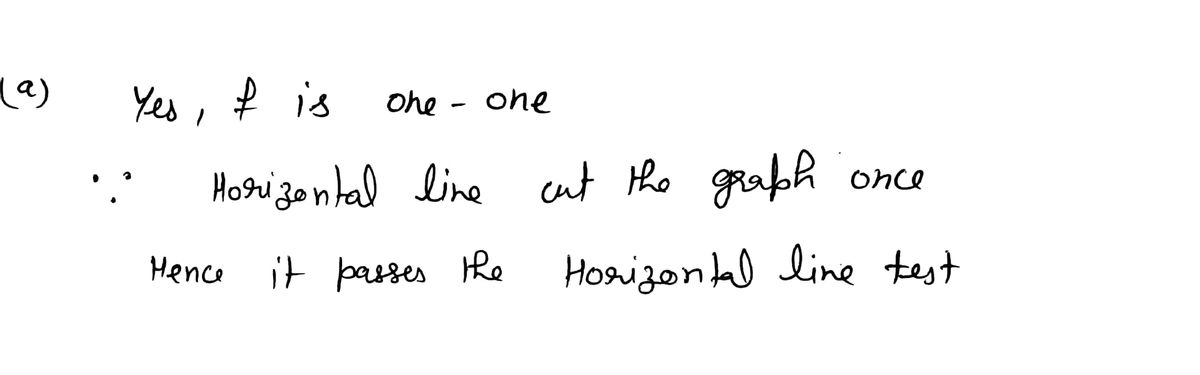 (a) Yes, f is one-one
∵ Horizontal line cut the graph once
Hence it passes the Horizontal line test